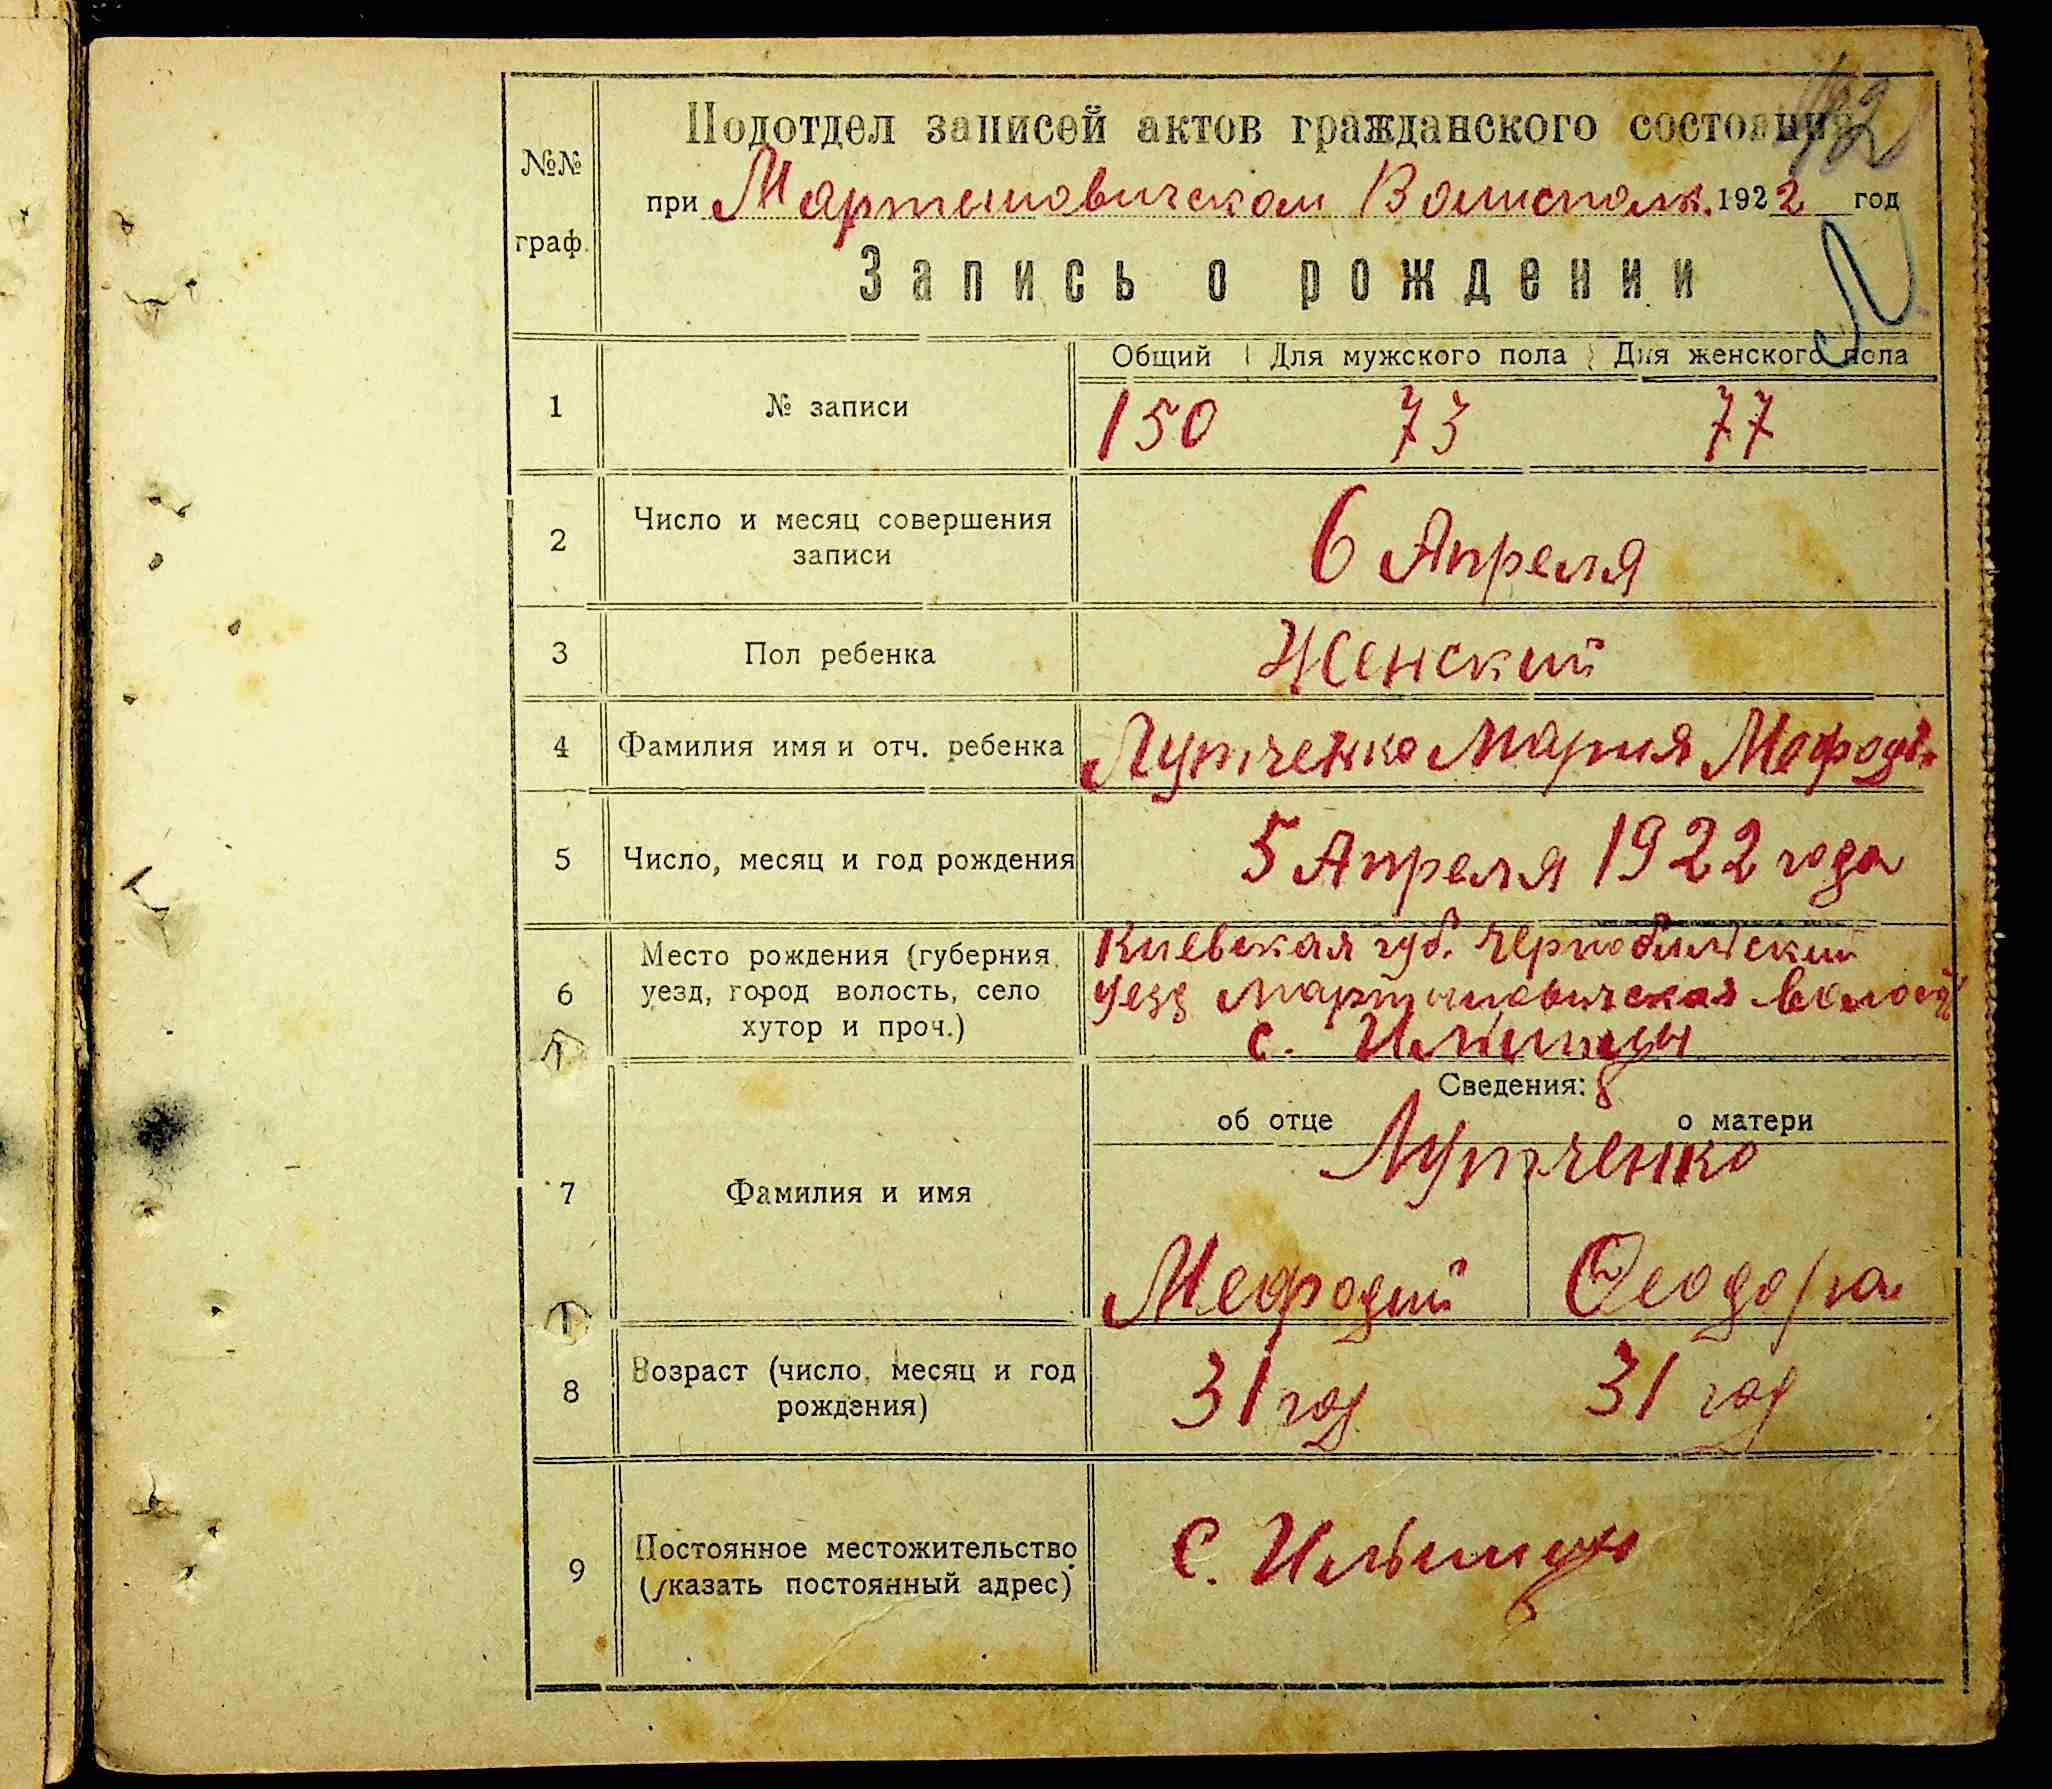 Подотдел записей актов гражданского состояния
при Мартыновичском Волисполк. 1922 год
Запись о рождении
№№ граф.
Общий Для мужского пола Для женского пола
1 № записи 150 73 77
2 Число и месяц совершения записи 6 Апреля
3 Пол ребенка Женский
4 Фамилия имя и отч. ребенка Лутченко Мария Мефодь
5 Число, месяц и год рождения 5 Апреля 1922 года
6 Место рождения (губерния, уезд, город волость, село хутор и проч.)
Киевская губ. Чернобильский
уезд Мартыновичская волость
с. Ильинцы
Сведения:
об отце о матери
7 Фамилия и имя
Лутченко
Мефодий Феодора
8 Возраст (число, месяц и год рождения) 31 год 31 год
9 Постоянное местожительство (указать постоянный адрес) с. Ильинцы